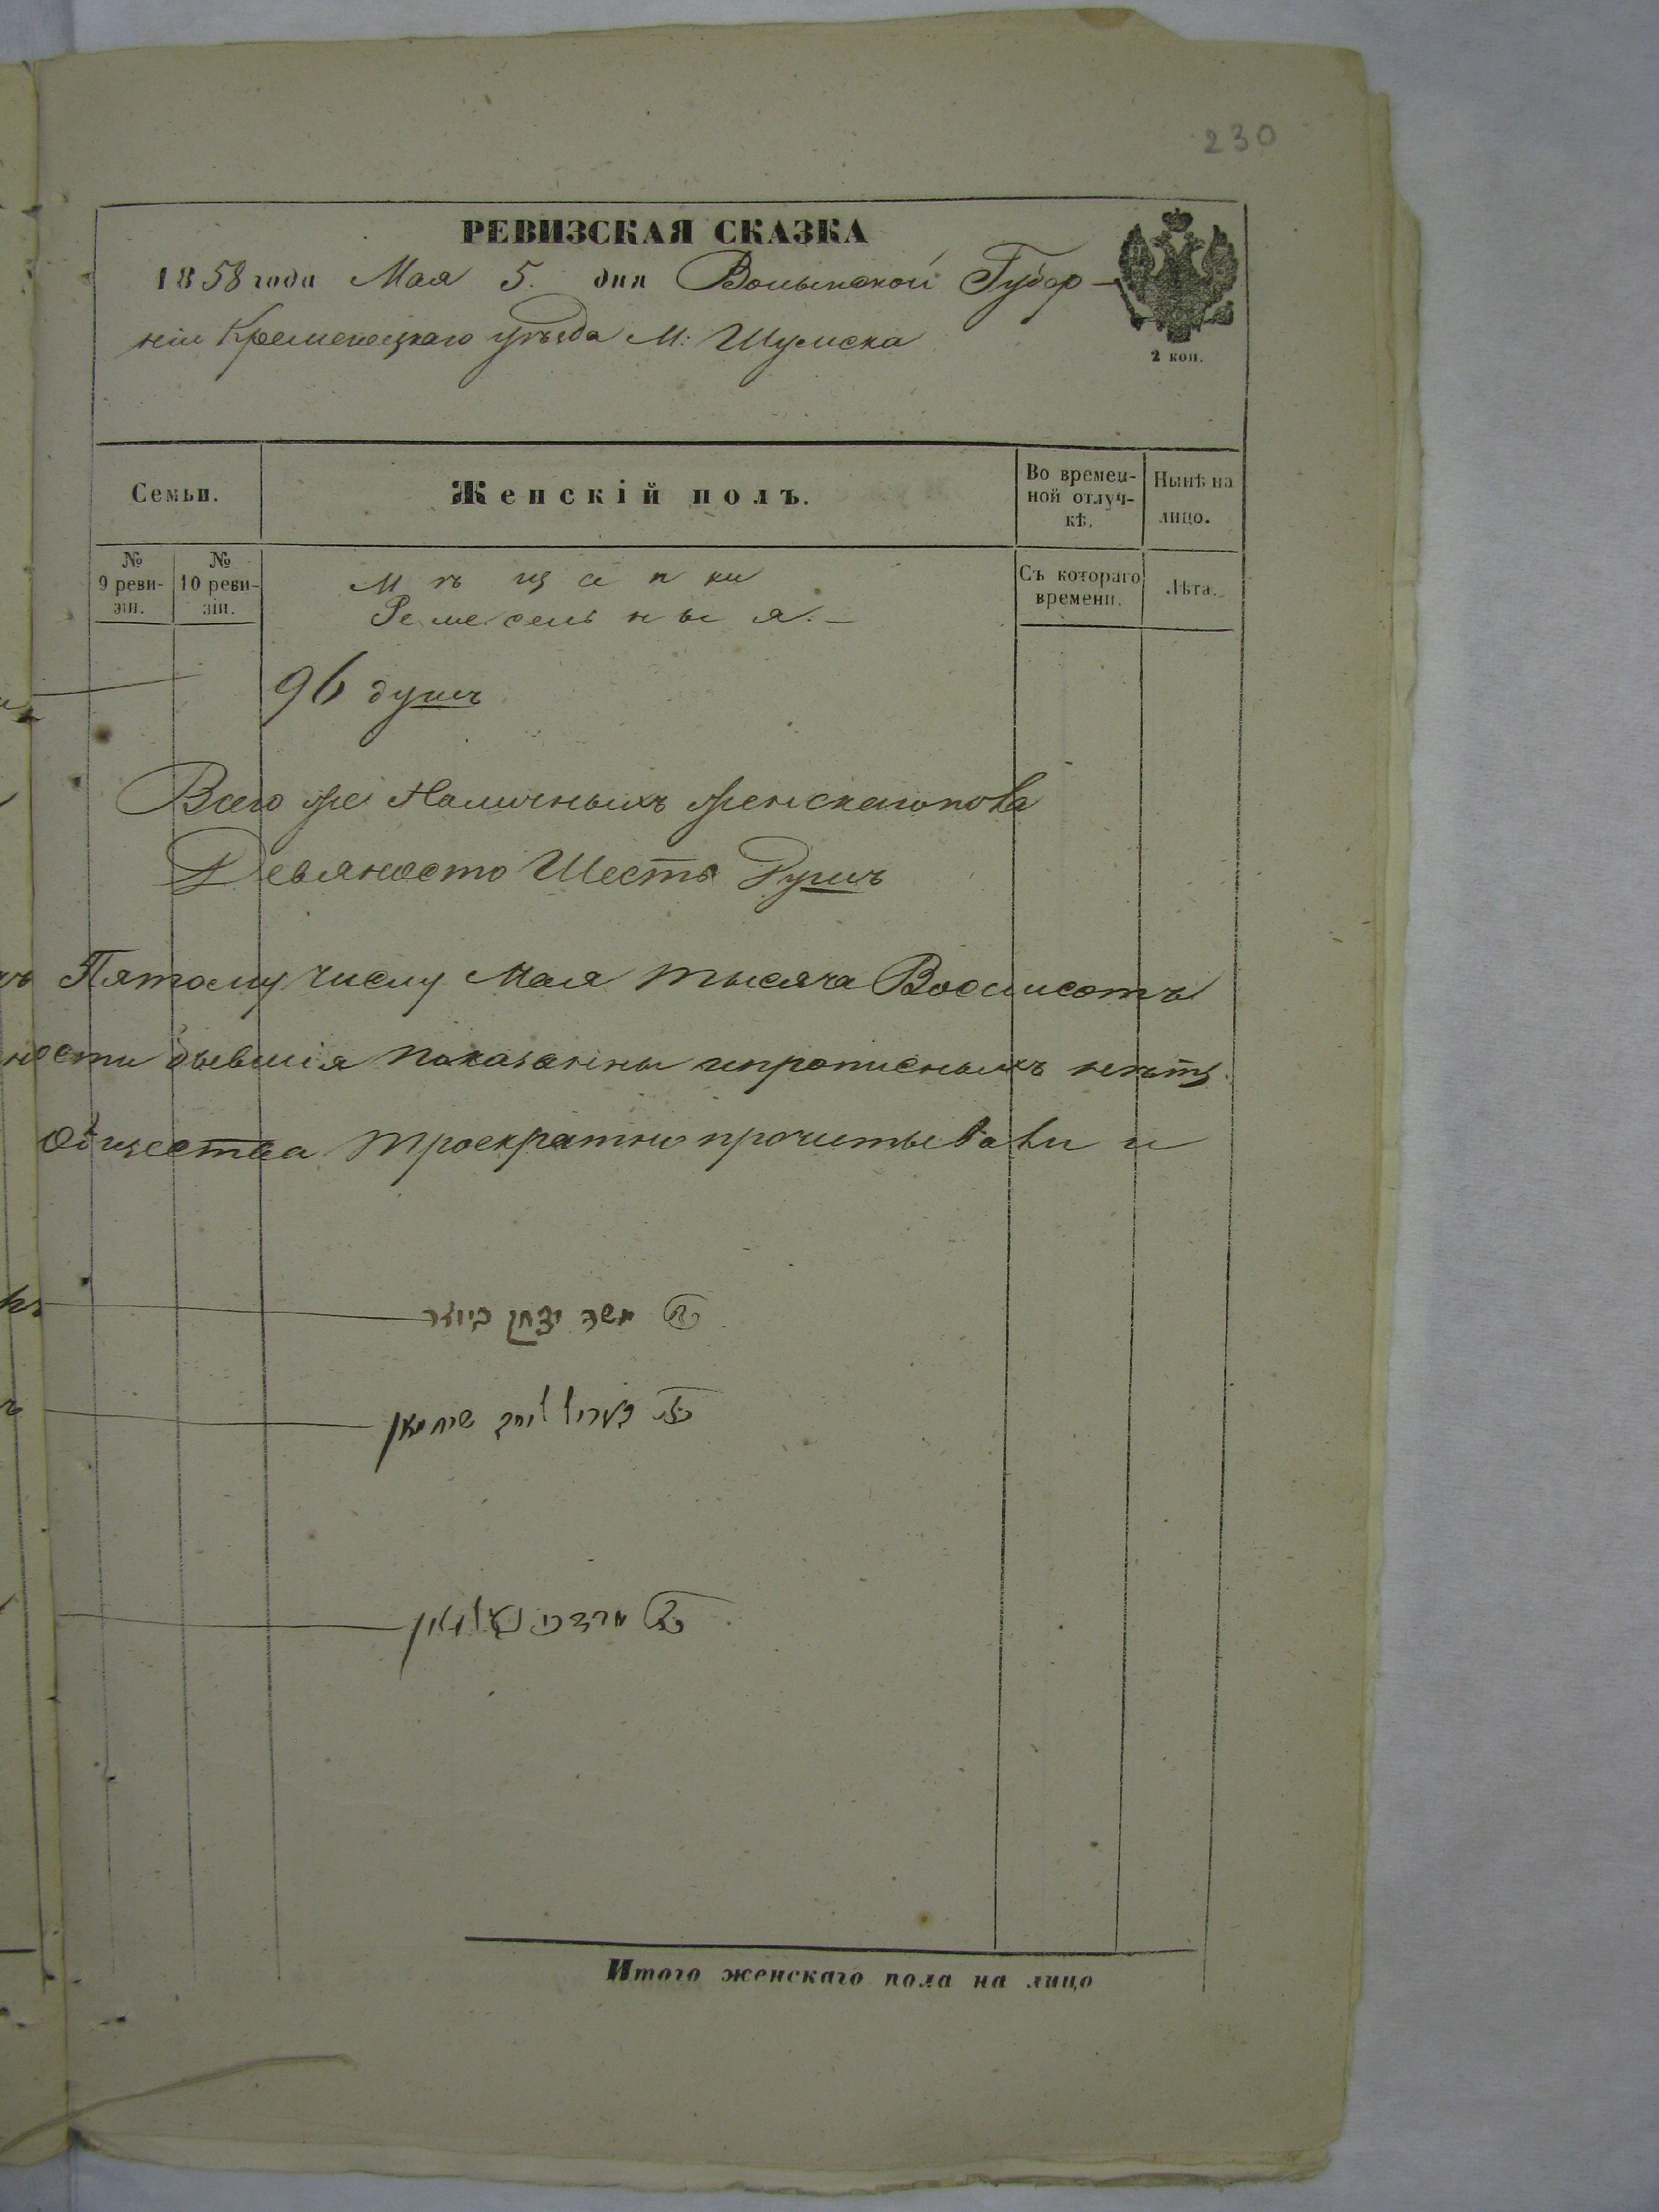 230
РЕВИЗСКАЯ СКАЗКА
1858 года Мая 5. дня Волынской Губер-
нiи Кременецкаго уѣзда М: Шумска
2 коп.
Семьи.
Женскiй полъ.
Во времен-
ной отлуч-
кѣ.
Нынѣ на
лицо.
№
9 реви-
зiи.
№
10 реви-
зiи.
Мѣщанки
Ремесельныя.-
Съ котораго
времени.
Лѣта.
96 душъ
Всего же Наличныхъ женскаго пола
Девяносто Шесть Душъ
Пятому числу Мая тысяча Восмисотъ
ности бывшiя показанны и прописныхъ нѣтъ
Общества троекратно прочитывали и
משה יצחק
מרדכי
Итого женскаго пола на лицо